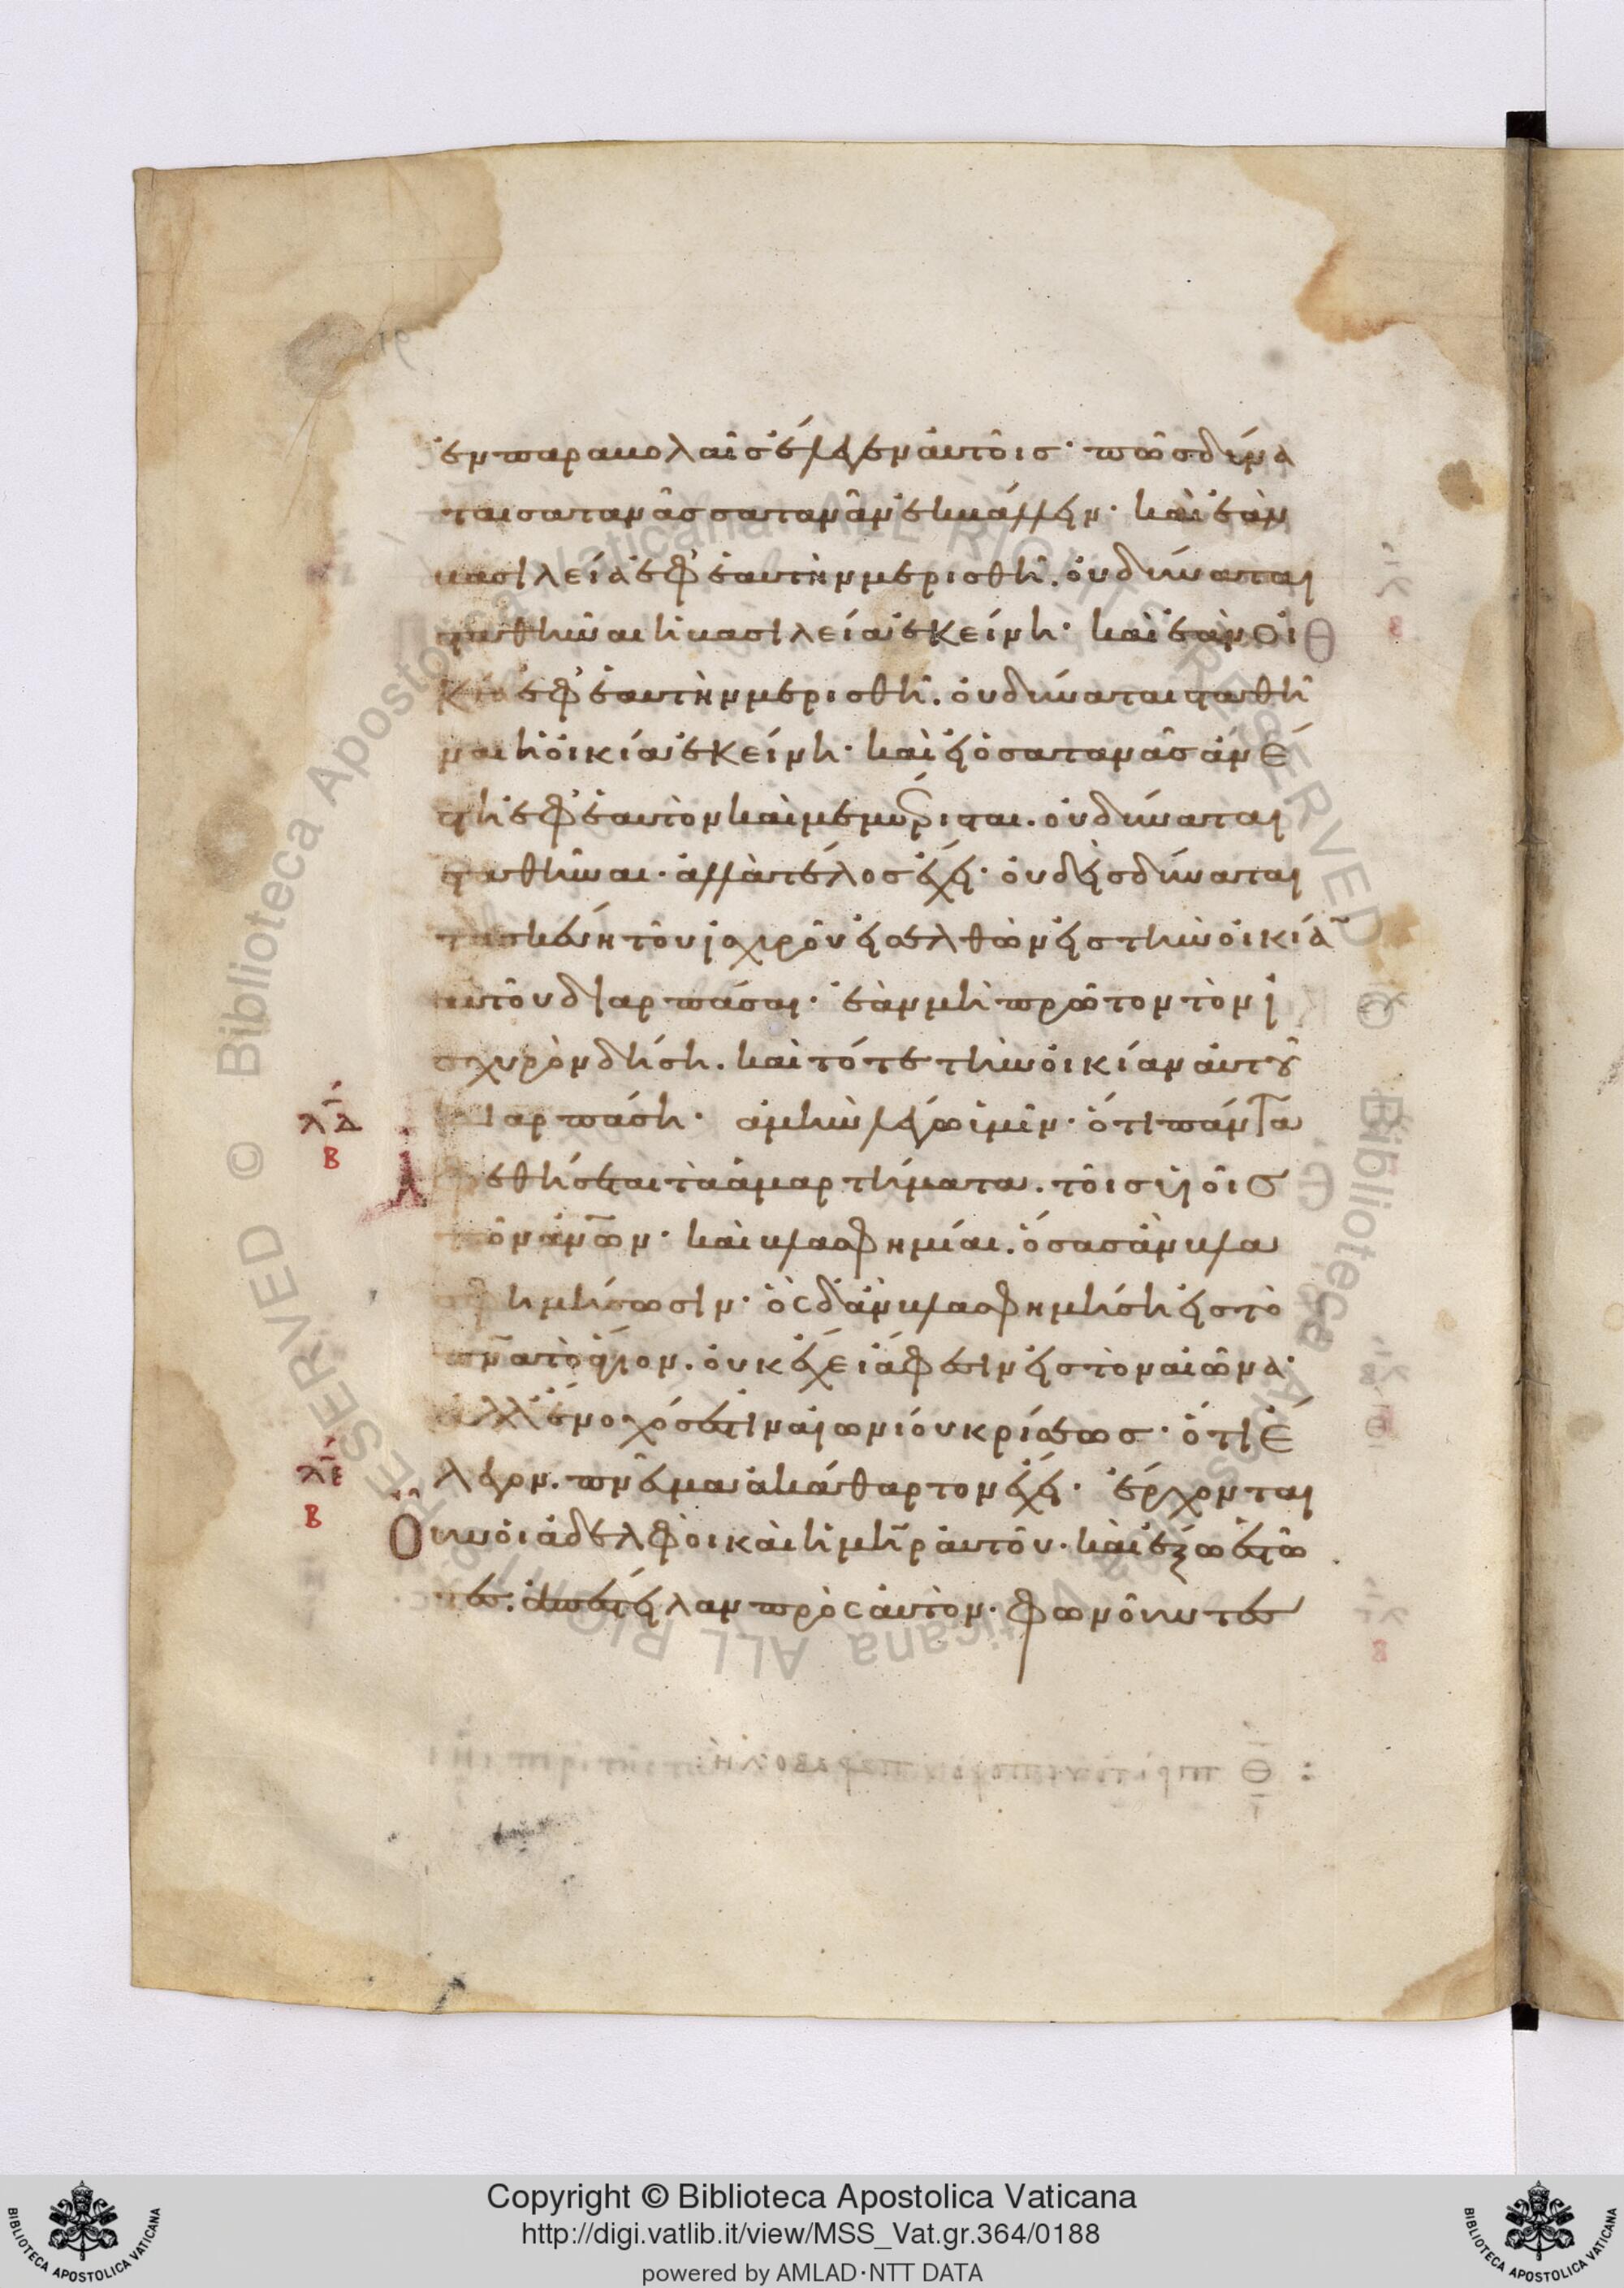 ἐν παραβολαῖς ἔλεγεν αὐτοῖς· πῶς δύνα
ται σατανᾶς σατανᾶν ἐκβάλλειν· καὶ ἐὰν
βασιλεία ἐφ' ἑαυτὴν μερισθῆ. οὐ δύναται
σταθῆναι ἡ βασιλεία ἐκείνη· καὶ ἐὰν οἰ
κία ἐφ' ἑαυτὴν μερισθῆ. οὐ δύναται σταθῆ
ναι ἡ οἰκία ἐκείνη· καὶ εἰ ὁ σατανᾶς ἀνέ
στη ἐφ' ἑαυτὸν καὶ μεμέρισται. οὐ δύναται
σταθῆναι· ἀλλὰ τέλος ἔχει· οὐδεὶς δύναται
τὰ σκεύη τοῦ ἰσχυροῦ εἰσελθὼν εἰς τὴν οἰκία̅
αὐτοῦ διαρπάσαι· ἐὰν μὴ πρῶτον τὸν ἰ
σχυρὸν δήση. καὶ τότε τὴν οἰκίαν αὐτοῦ
λ̅δ̅
Β
διαρπάση· ἀμὴν λέγω ὑμῖν· ὅτι πάντα
ἀφεθήσεται τὰ ἁμαρτήματα. τοῖς υἱοῖς
τῶν ἀν̅ων· καὶ βλασφημίαι. ὅσας ἀν βλα
σφημήσωσιν· ὃς δ' ἀν βλασφημήση εἰς τὸ
πν̅α τὸ ἅγιον. οὐκ ἔχει ἄφεσιν εἰς τὸν αἰῶνα·
ἀλλ' ἔνοχός ἐστιν αἰωνίου κρίσεως· ὅτι ἔ
λ̅ε̅
Β
λεγον. πνεῦμα ἀκάθαρτον ἔχει· ἔρχονται
Οὖν οἱ ἀδελφοὶ καὶ ἡ μη̅ρ αὐτοῦ· καὶ ἔξω ἑστῶ
τες. ἀπέστειλαν πρὸς αὐτὸν· φωνοῦντες
Copyright © Biblioteca Apostolica Vaticana
http://digi.vatlib.it/view/MSS_Vat.gr.364/0188
powered by AMLAD·NTT DATA